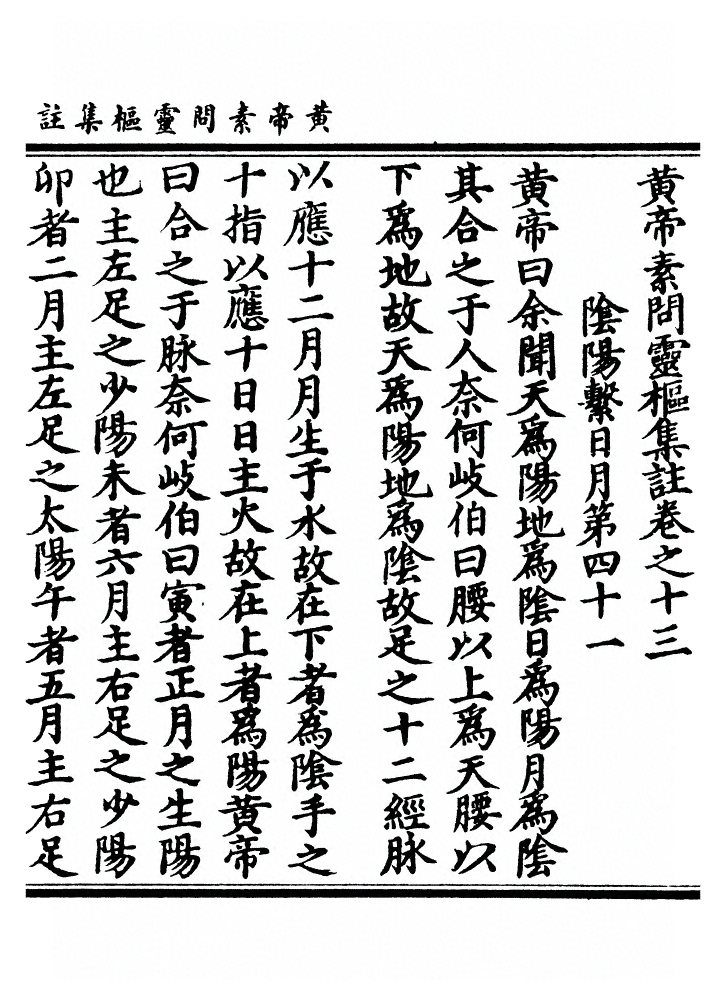 黃帝素問靈樞集註
黃帝素問靈樞集註卷之十三
陰陽繫日月第四十一
黃帝曰余聞天爲陽地爲陰日爲陽月爲陰
其合之于人奈何岐伯曰腰以上爲天腰以
下爲地故天爲陽地爲陰故足之十二經脉
以應十二月月生于水故在下者爲陰手之
十指以應十日日主火故在上者爲陽黃帝
曰合之于脉奈何岐伯曰寅者正月之生陽
也主左足之少陽未者六月主右足之少陽
卯者二月主左足之太陽午者五月主右足